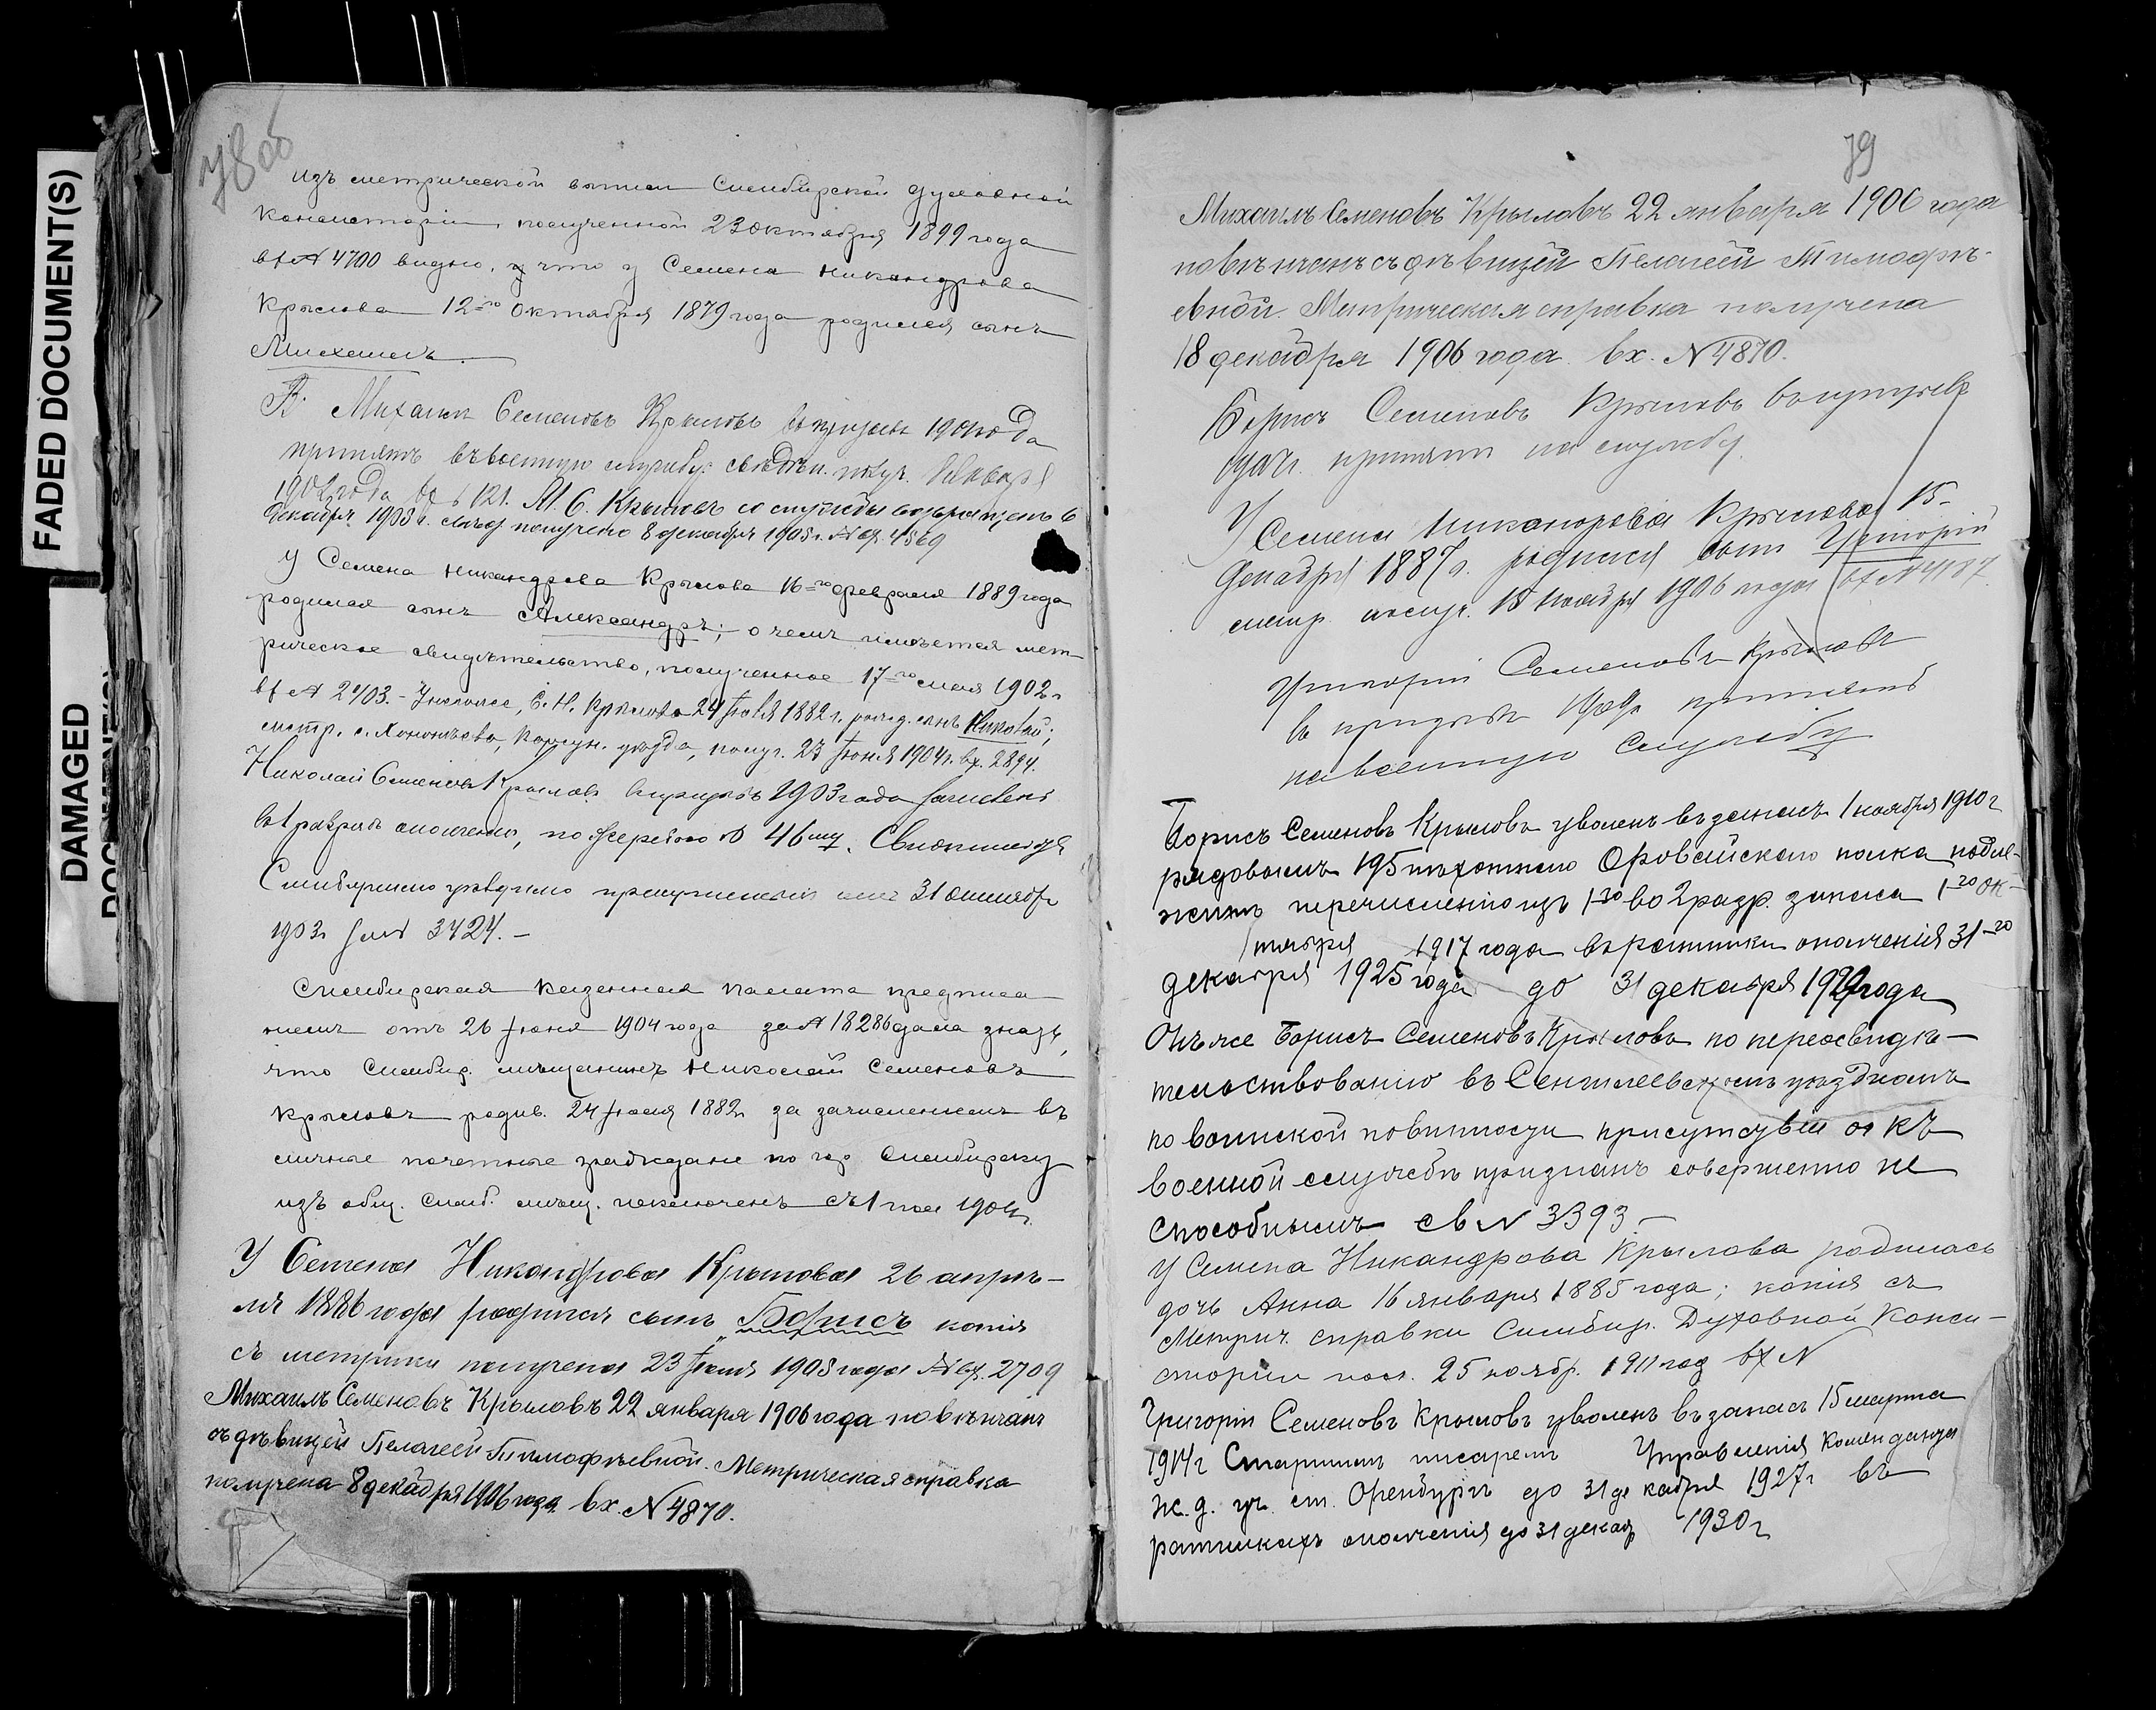 FADED DOCUMENT(S)
DAMAGED
78 об
изъ метрической выписи Симбирской духовной
Консисторіи, полученной 23 октября 1899 года
вх № 4700 видно, что у Семена Никандрова
Крылова 12-го Октября 1879 года родился сынъ
Михаилъ.
Михаилъ Семеновъ Крыловъ въ призывъ 1901 года
принятъ въ военную службу: свѣдѣн. получ. Января
1902 года вх 121. М. С. Крыловъ со службы возвращенъ въ
Декабрѣ 1905 г. получено 8 декабря 1905 г. № вх. 4569
У Семена Никандрова Крылова 16-го февраля 1889 года
родился сынъ Александръ; о чемъ имѣется мет-
рическое свидѣтельство, полученное 17-го мая 1902 г
вх № 2703. - У него же, С. Н. Крылова 24 Іюля 1882 г. рожд. сынъ Николай;
метр. с. Корсун. уѣзда, получ. 23 Іюня 1904 г. вх. 2894.
Николай Семеновъ Крыловъ въ призывъ 1903 года зачисленъ
въ 1 разрядъ ополченія, по жеребью № 46му.
Симбирскаго уѣзднаго присутствія 31 октября
1903 г за № 3424. -
Симбирская казенная палата предписа-
ніемъ отъ 26 Іюня 1904 года за № 18286 дала знать,
что Симбир. мѣщанинъ Николай Семеновъ
Крыловъ родив. 24 Іюля 1882 г за зачисленіемъ въ
личные почетные граждане по гор Симбирску
изъ общ. Симб. мѣщ. исключенъ съ 1 1904 г.
У Семена Никандрова Крылова 26 апрѣ-
ля 1886 года родился сынъ Борисъ копія
съ метрики получена 23 Іюля 1908 года № вх. 2709
Михаилъ Семеновъ Крыловъ 22 января 1906 года повѣнчанъ
съ дѣвицей Пелагеей Тимофѣевной. Метрическая справка
получена 8 декабря 1906 года вх. № 4870.
79
Михаилъ Семеновъ Крыловъ 22 января 1906 года
повѣнчанъ съ дѣвицей Пелагеей Тимофѣ-
евной. Метрическая справка получена
18 декабря 1906 года вх. № 4870.
Борисъ Семеновъ Крыловъ въ призывъ
принятъ на службу.
У Семена Никанорова Крылова 15-
Декабря 1887 г. родился сынъ Григорій
метр. получ. 18 Ноября 1906 года вх № 4187.
Григорій Семеновъ Крыловъ
въ призывъ принятъ
на военную Службу
Борисъ Семеновъ Крыловъ уволенъ въ запасъ 1 ноября 1910 г
рядовымъ 195 пѣхотнаго Оровайскаго полка подле-
житъ перечисленію изъ 1-го во 2 разр. запаса 1-го Ок-
тября 1917 года въ ратники ополченія 31-го
декабря 1925 года до 31 декабря 1929 года
Онъ же Борисъ Семеновъ Крыловъ по переосвидѣ-
тельствованію въ Сенгилеевскомъ уѣздномъ
по воинской повинности присутствіи къ
военной службѣ признанъ совершенно не
способнымъ св № 3393. -
У Семена Никандрова Крылова родилась
дочь Анна 16 января 1885 года; копія съ
Метрич. справки Симбир. Духовной Конси-
сторіи пол. 25 ноябр. 1911 год вх №
Григорій Семеновъ Крыловъ уволенъ въ запасъ 15 марта
1914 г Старшимъ писаремъ Управленія Коменданта
ж. д. уч. ст. Оренбургъ до 31 декабря 1927 г въ
ратникахъ ополченія до 31 декаб 1930 г